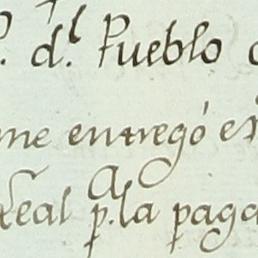 P. d.l Pueblo
me entregó es
Real p.a la paga